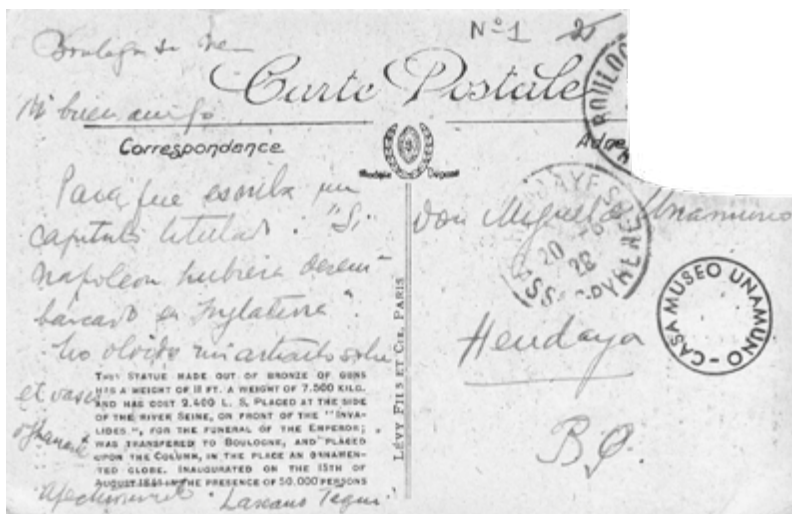 Nº 1
Boulogne
Mi buen amigo
Carte Postale
BOULOG
Correspondance
Adre
Modèle Déposé
Para que escriba un
capitulo titulado: "Si
Napoleon hubiera desem
barcado en Inglaterra".
No olvido mi artículo sobre
et vasco
THIS STATUE MADE OUT OF BRONZE OF GUNS
HAS A WEIGHT OF 18 FT. A WEIGHT OF 7.500 KILO.
AND HAS COST 2.400 L. S. PLACED AT THE SIDE
OF THE RIVER SEINE, ON FRONT OF THE "INVA-
LIDES", FOR THE FUNERAL OF THE EMPEROR;
WAS TRANSFERED TO BOULOGNE, AND PLACED
UPON THE COLUMN, IN THE PLACE AN ORNAMEN-
TED GLOBE. INAUGURATED ON THE 15TH OF
AUGUST 1841 IN THE PRESENCE OF 50.000 PERSONS
LÉVY FILS ET CIE, PARIS
Don Miguel de Unamuno
20
PYRENEES
Hendaya
B.P.
CASA MUSEO UNAMUNO